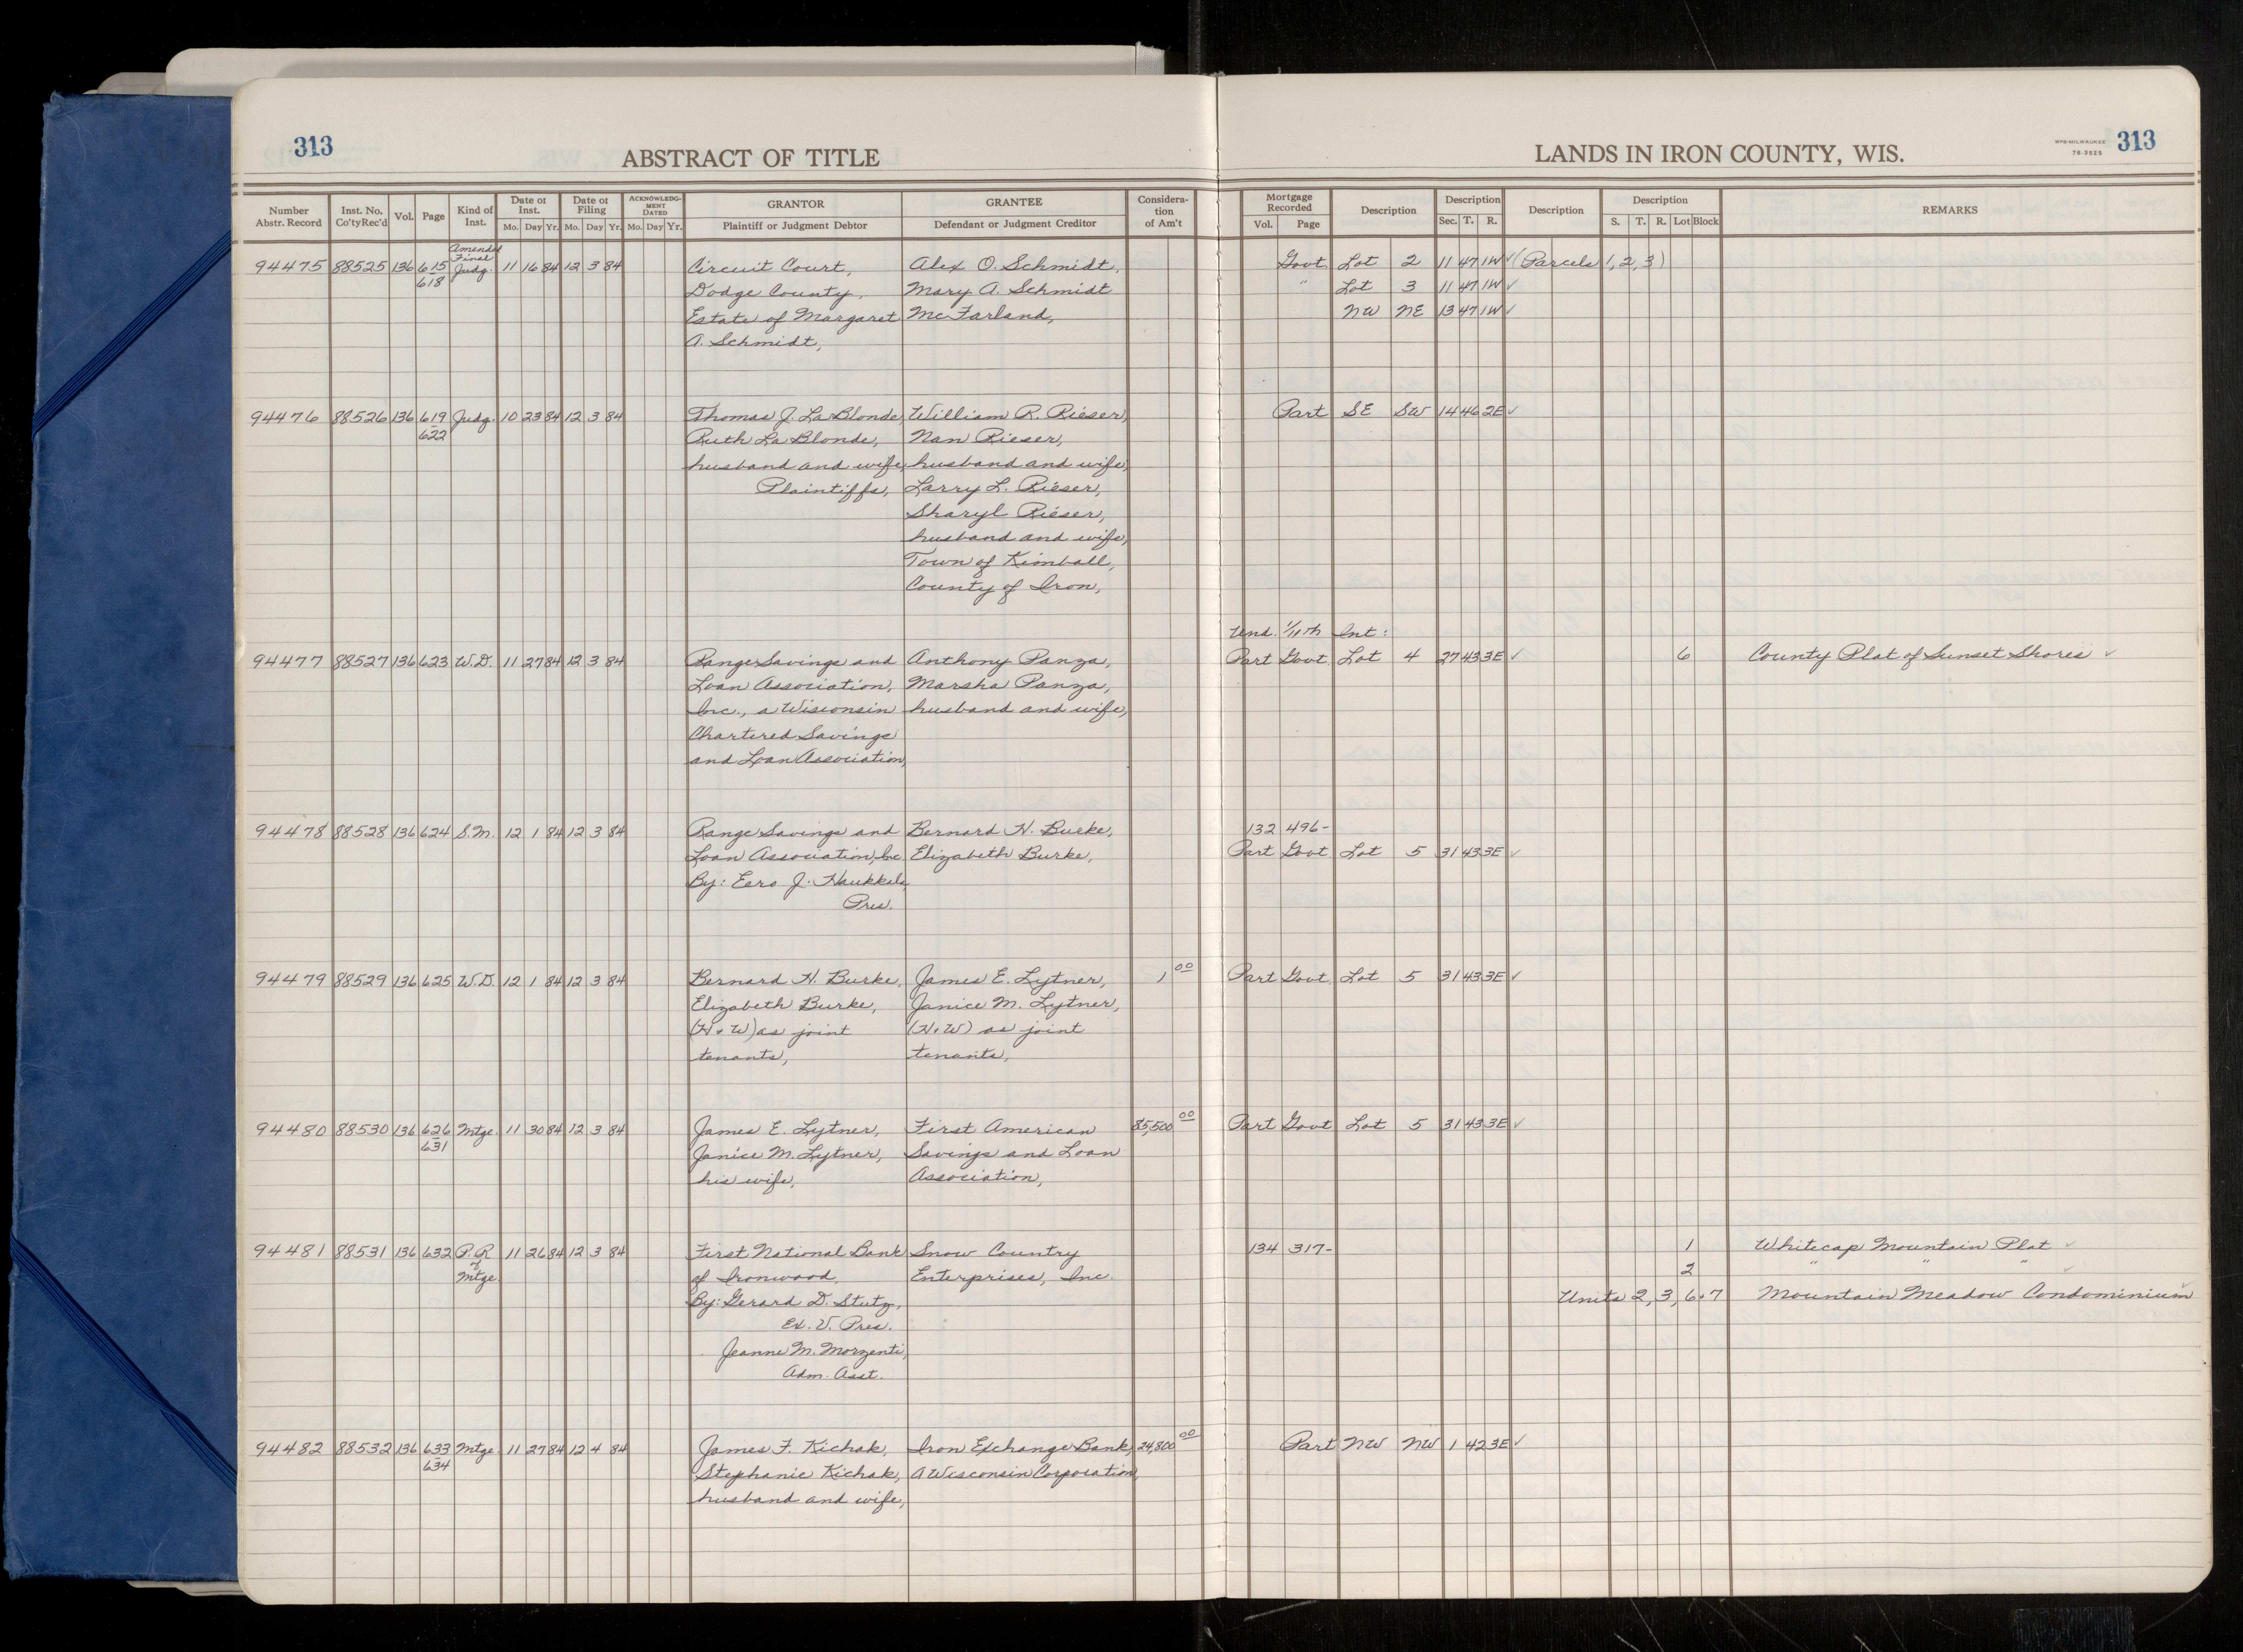 313
ABSTRACT OF TITLE
LANDS IN IRON COUNTY, WIS.
WPB-MILWAUKEE
76-3525
313
Number Abstr. Record | Inst. No. Co'ty Rec'd | Vol. | Page | Kind of Inst. | Date of Inst. Mo. Day Yr. | Date of Filing Mo. Day Yr. | ACKNOWLEDGMENT DATED Mo. Day Yr. | GRANTOR Plaintiff or Judgment Debtor | GRANTEE Defendant or Judgment Creditor | Consideration of Am't | Mortgage Recorded Vol. Page | Description | Description Sec. T. R. | Description | Description S. T. R. Lot Block | REMARKS
Amended
Final
94475 88525 136 615 Judg. 11 16 84 12 3 84 Circuit Court, Alex O. Schmidt, Govt. Lot 2 11 47 1W ✓ (Parcels 1, 2, 3)
618 Dodge County, Mary A. Schmidt " Lot 3 11 47 1W ✓
Estate of Margaret McFarland, NW NE 13 47 1W ✓
A. Schmidt,
94476 88526 136 619 Judg. 10 23 84 12 3 84 Thomas J. LaBlonde, William R. Rieser, Part SE SW 14 46 2E ✓
622 Ruth LaBlonde, Nan Rieser,
husband and wife, husband and wife,
Plaintiffs, Larry L. Rieser,
Sharyl Rieser,
husband and wife,
Town of Kimball,
County of Iron,
Und. 1/11th Int:
94477 88527 136 623 W.D. 11 27 84 12 3 84 Range Savings and Anthony Panza, Part Govt. Lot 4 27 43 3E ✓ 6 County Plat of Sunset Shores ✓
Loan Association, Marsha Panza,
Inc., a Wisconsin husband and wife,
Chartered Savings
and Loan Association,
94478 88528 136 624 S.M. 12 1 84 12 3 84 Range Savings and Bernard H. Burke, 132 496-
Loan Association, Inc. Elizabeth Burke, Part Govt Lot 5 31 43 3E ✓
By: Eero J. Haukkala,
Pres.
94479 88529 136 625 W.D. 12 1 84 12 3 84 Bernard H. Burke, James E. Lytner, 1 00 Part Govt. Lot 5 31 43 3E ✓
Elizabeth Burke, Janice M. Lytner,
(H+W) as joint (H+W) as joint
tenants, tenants,
94480 88530 136 626 Mtge. 11 30 84 12 3 84 James E. Lytner, First American 85,500 00 Part Govt Lot 5 31 43 3E ✓
631 Janice M. Lytner, Savings and Loan
his wife, Association,
94481 88531 136 632 P.R. 11 26 84 12 3 84 First National Bank Snow Country 134 317- 1 Whitecap Mountain Plat ✓
of of Ironwood, Enterprises, Inc. 2 " " " ✓
Mtge. By: Gerard D. Stutz, Units 2, 3, 6+7 Mountain Meadow Condominium ✓
Ex. V. Pres.
Jeanne M. Morzenti,
Adm. Asst.
94482 88532 136 633 Mtge. 11 27 84 12 4 84 James F. Kichak, Iron Exchange Bank, 24,800 00 Part NW NW 1 42 3E ✓
634 Stephanie Kichak, A Wisconsin Corporation,
husband and wife,